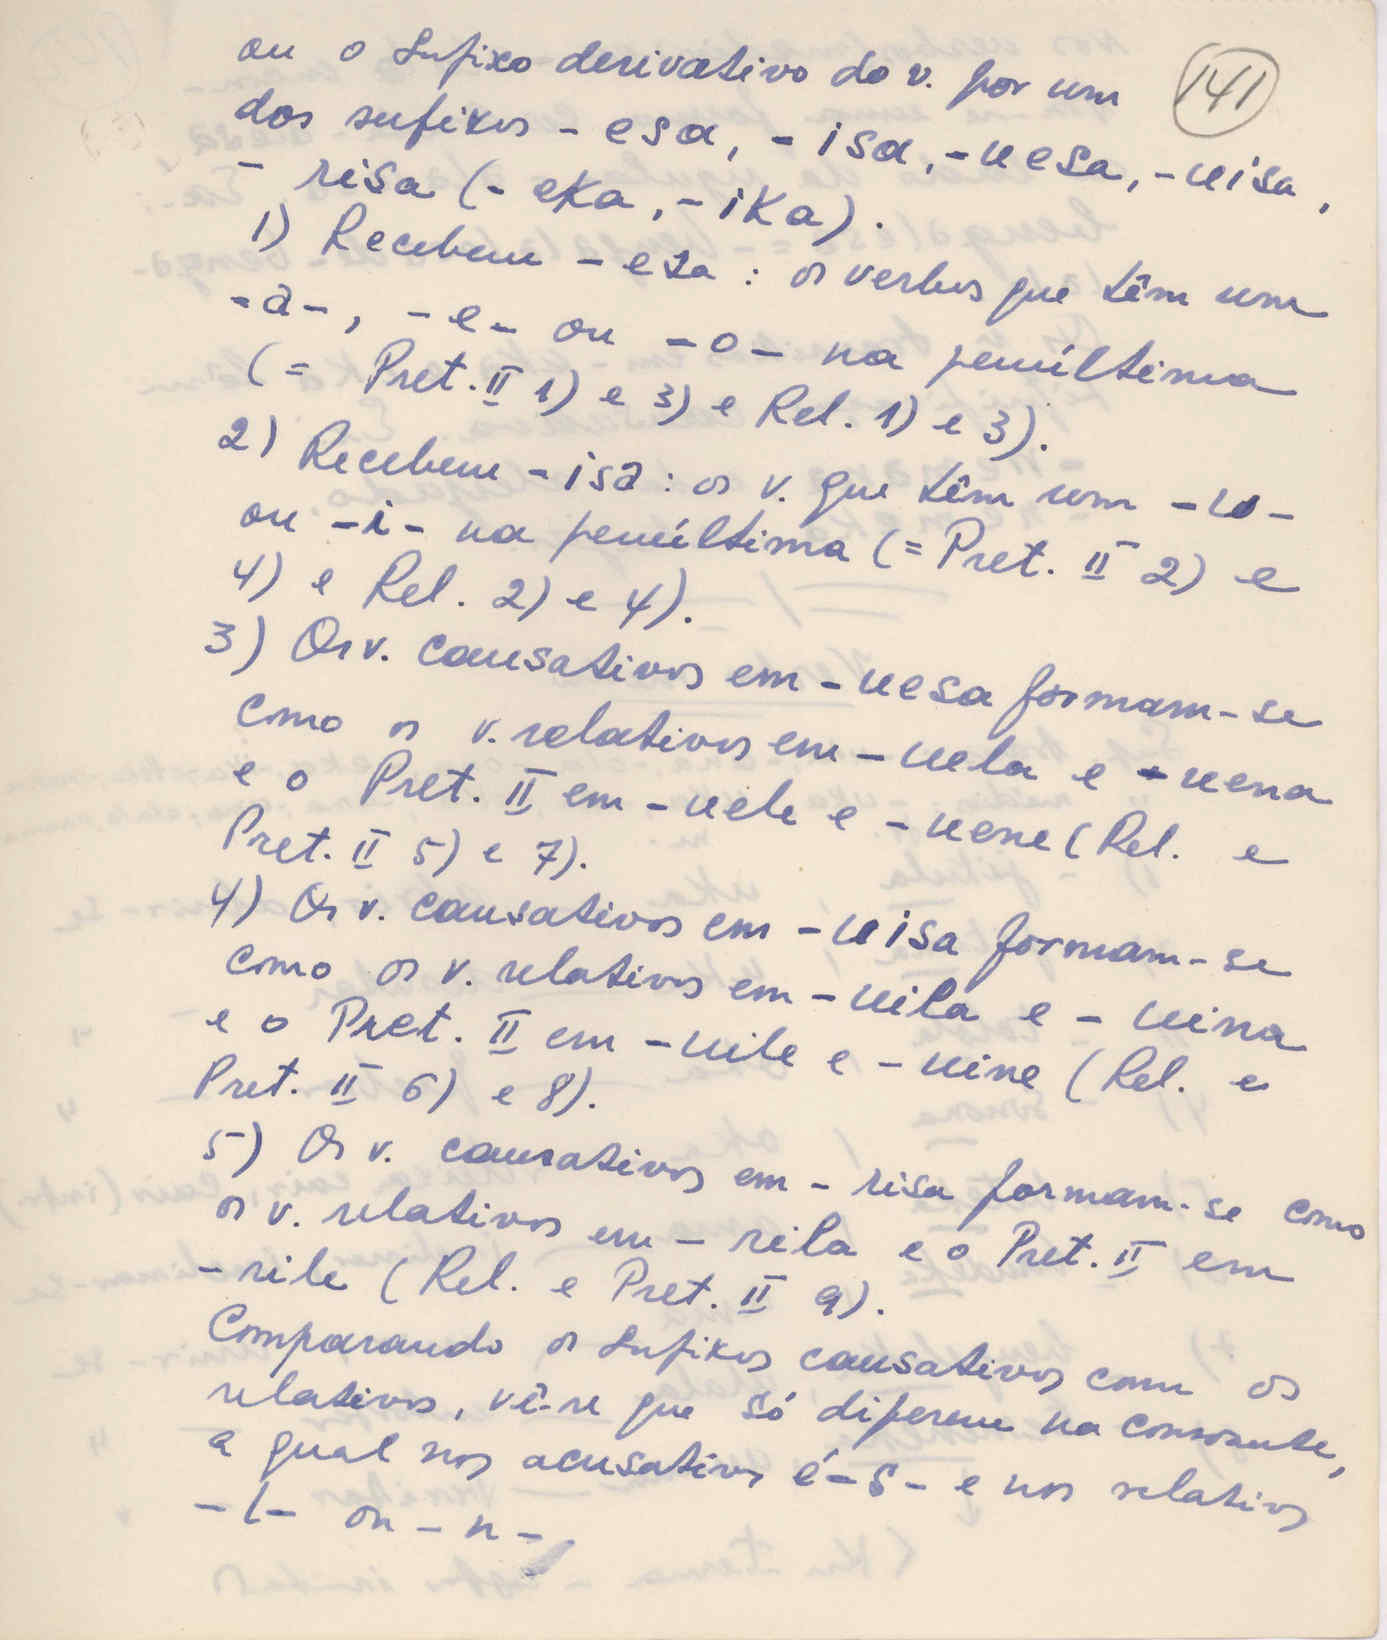 141
ou o sufixo derivativo do v. por um
dos sufixos - esa, - isa, - uesa, - uisa,
- risa (- eka, - ika).
1) Recebem - esa : os verbos que têm um
- a -, - e - ou - o - na penúltima
(= Pret. II 1) e 3) e Rel. 1) e 3).
2) Recebem - isa : os v. que têm um - u -
ou - i - na penúltima (= Pret. II 2) e
4) e Rel. 2) e 4).
3) Os v. causativos em - uesa formam-se
como os v. relativos em - uela e - uena
e o Pret. II em - uele e - uene (Rel. e
Pret. II 5) e 7).
4) Os v. causativos em - uisa formam-se
como os v. relativos em - uila e - uina
e o Pret. II em - uile e - uine (Rel. e
Pret. II 6) e 8).
5) Os v. causativos em - risa formam-se como
os v. relativos em - rila e o Pret. II em
- rile (Rel. e Pret. II 9).
Comparando os sufixos causativos com os
relativos, vê-se que só diferem na consoante,
a qual nos acusativos é - s - e nos relativos
- l - ou - n -.